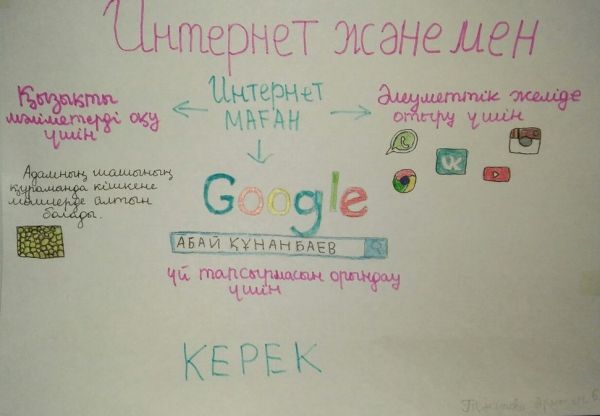 Интернет және мен
Интернет
маған
Қызықты
мәліметтерді оқу
үшін
Адамның шашының
құрамында кішкене
мөлшерде алтын
болады.
Әлеуметтік желіде
отыру үшін
Google
АБАЙ ҚҰНАНБАЕВ
үй тапсырмасын орындау
үшін
КЕРЕК